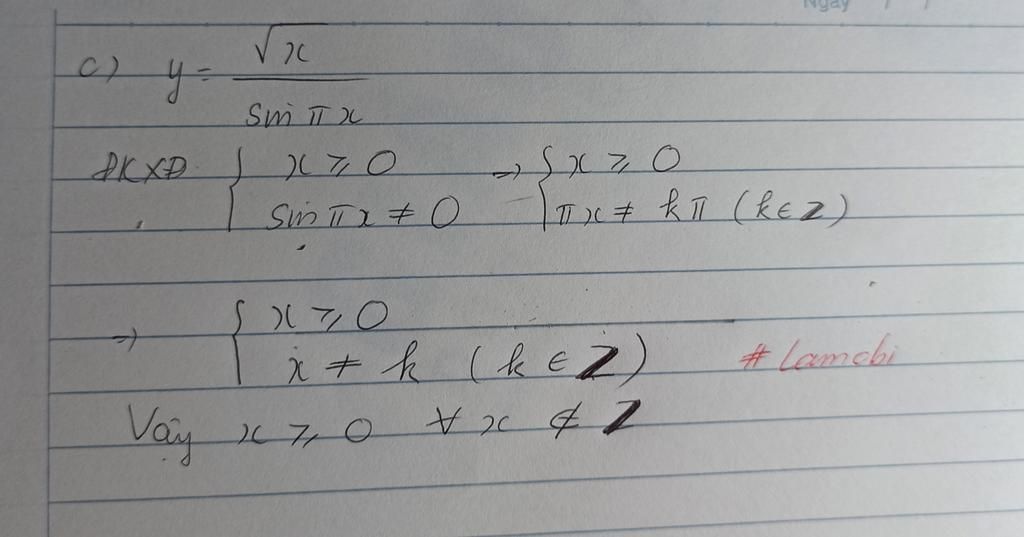 Ngày / /
c) y = √x / sin πx
ĐKXĐ { x ≥ 0 => { x ≥ 0
sin πx ≠ 0 πx ≠ kπ (k ∈ Z)
=> { x ≥ 0
x ≠ k (k ∈ Z) # Lamcbi
Vậy x ≥ 0 ∀ x ∉ Z